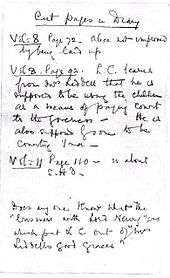 Cut pages in Diary
Vol: 8 Page 72. Alice not improved
by being laid up
Vol 8. Page 92. L.C. learns
from Mrs Liddell that he is
supposed to be using the children
as a means of paying court
to the governess - He is
also supposed soon to be
courting Ina -
Vol: 11 Page 110 - is about
Does any one know what the
"business with Lord Newry" was
which put L.C. out of Mrs
Liddell's good graces